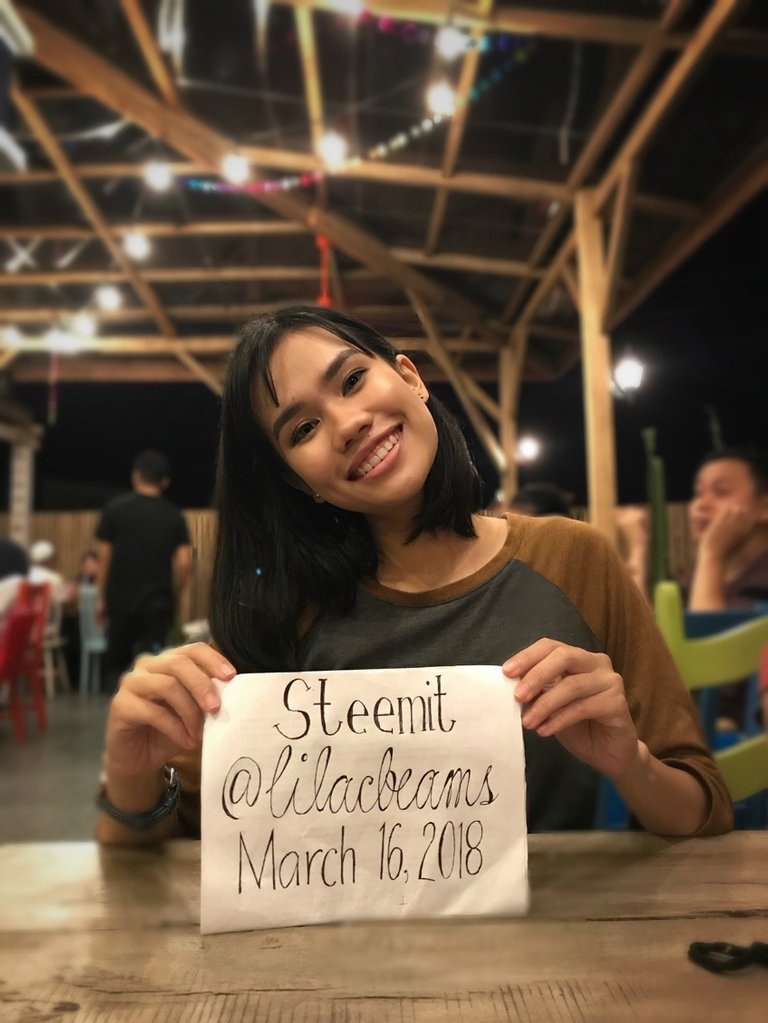 Steemit
@lilacbeams
March 16, 2018